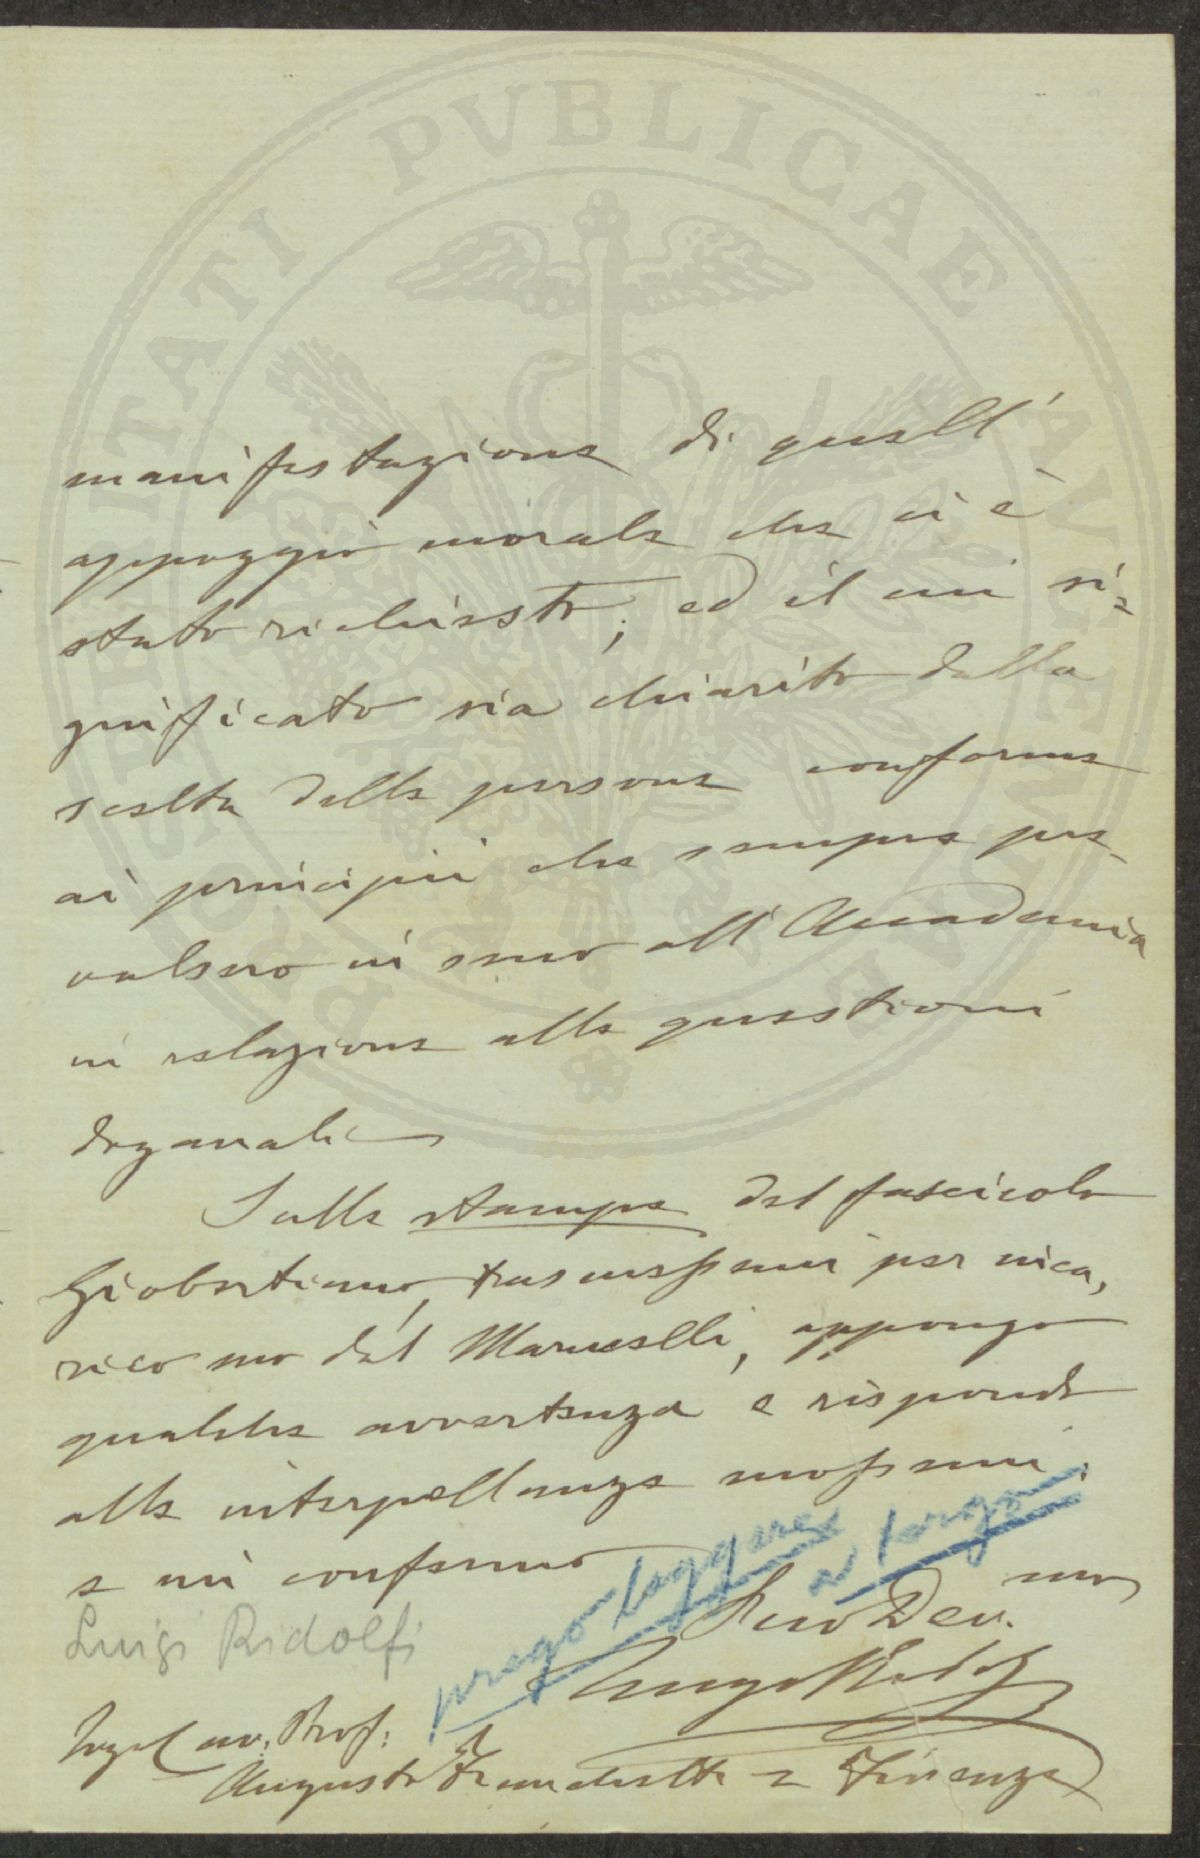 PROSPERITATI PVBLICAE AVGENDAE
manifestazione di quell'
appoggio morale che ci è
stato richiesto; ed il cui si=
gnificato sia chiarito dalla
scelta delle persone conforme
ai principii che sempre pre-
valsero in seno all'Accademia
in relazione alle questioni
doganali
Sulle stampe del fascicolo
Giobertiano, trasmessemi per inca,
rico suo dal Marucelli, appongo
qualche avvertenza e rispondo
alle interpellanze mossemi.
e mi confermo
prego leggere
a tergo
Suo Dev. mo
Luigi Ridolfi
Luigi Ridolfi
av. Prof.
Augusto Franchetti = Firenze